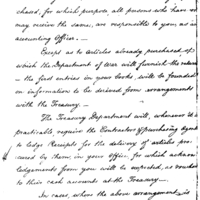 chased, for which purpose all persons who have or
may receive the same, are responsible to you, as an
accounting Officer. —
Except as to articles already purchased, of
which the Department of War will furnish the return
— the first entries in your books, will be founded
on information to be derived from arrangements
with the Treasury. —
The Treasury Department will, whenever it is
practicable, require the Contractors & purchasing Agents
to lodge Receipts for the delivery of articles pro
cured by them in your office for which acknow
ledgements from you will be expected, as vouchers
to their cash accounts at the Treasury. —
In cases, where the above arrangement is